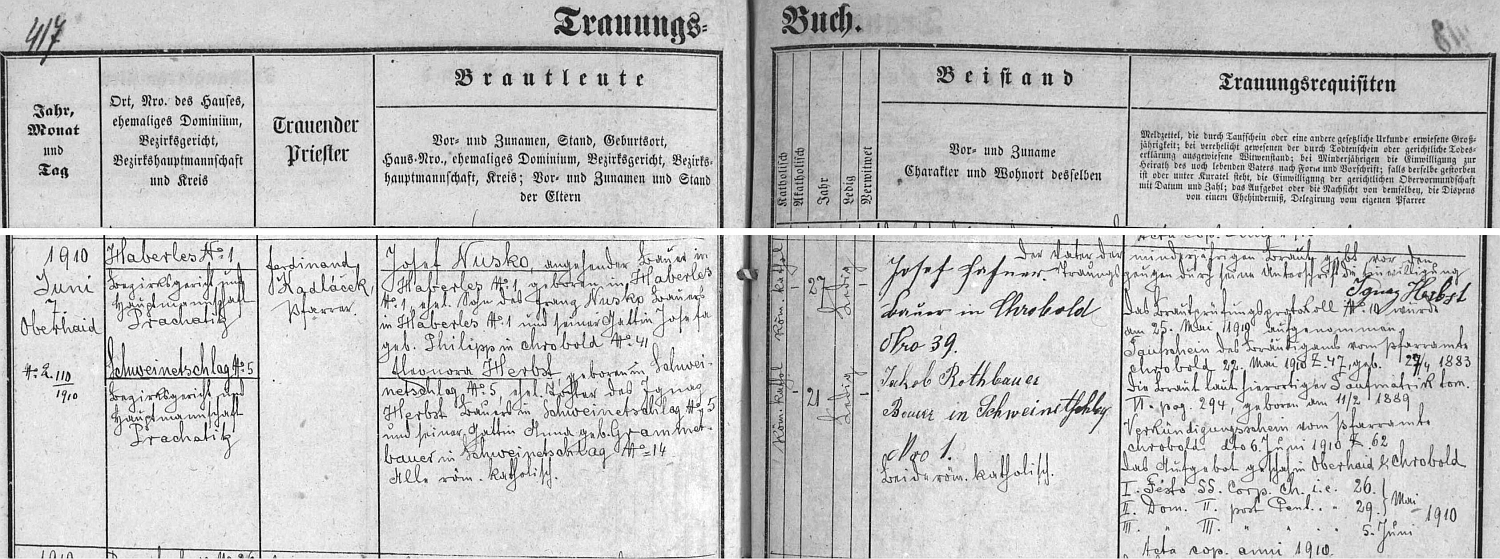 417
Trauungs-
Buch.
418
Jahr,
Monat
und
Tag
Ort, Nro. des Hauses,
ehemaliges Dominium,
Bezirksgericht,
Bezirkshauptmannschaft
und Kreis
Trauender
Priester
Brautleute
Vor- und Zunamen, Stand, Geburtsort,
Haus-Nro., ehemaliges Dominium, Bezirksgericht, Bezirks-
hauptmannschaft, Kreis; Vor- und Zunamen und Stand
der Eltern
Katholisch
Akatholisch
Jahr
Ledig
Verwitwet
Beistand
Vor- und Zuname
Charakter und Wohnort desselben
Trauungsrequisiten
Meldzettel, die durch Taufschein oder eine andere gesetzliche Urkunde erwiesene Groß-
jährigkeit; bei verehelicht gewesenen der durch Todtenschein oder gerichtliche Todes-
erklärung ausgewiesene Witwenstand; bei Minderjährigen die Einwilligung zur
Heirath des noch lebenden Vaters nach Form und Vorschrift; falls derselbe gestorben
ist oder unter Kuratel steht, die Einwilligung der gerichtlichen Obervormundschaft
mit Datum und Zahl; das Aufgebot oder die Nachsicht von demselben, die Dispens
von einem Ehehinderniß, Delegirung vom eigenen Pfarrer
1910
Juni
7
Oberhaid
No. 2. 110/1910
Haberles No 1
Bezirksgericht und
Hauptmannschaft
Prachatitz
Schweinetschlag No 5
Bezirksgericht und
Hauptmannschaft
Prachatitz
Ferdinand
Kadláček,
Pfarrer
Josef Nusko, angehender Bauer in
Haberles No 1, geboren in Haberles
No 1, ehel. Sohn des Franz Nusko Bauers
in Haberles No 1 und seiner Gattin Josefa
geb. Philipp in Chrobold No 41
Eleonora Herbst geboren in Schwei-
netschlag No 5, ehel. Tochter des Ignaz
Herbst Bauers in Schweinetschlag No 5
und seiner Gattin Anna geb. Grammet-
bauer in Schweinetschlag No 14
Alle röm. katholisch.
Röm. kathol
27
Ledig
Röm. kathol
21
Ledig
Josef
Bauer in Chrobold
Nro 39.
Jakob Rothbauer
Bauer in Schweinetschlag
Nro 1.
Beide röm. katholisch.
Der Vater der minderjährigen Braut gibt vor den
Trauungszeugen durch seine Unterschrift die Einwilligung
Ignaz Herbst
Das Brautprüfungsprotokoll No 10 wurde
am 25. Mai 1910 aufgenommen
Taufschein des Bräutigams vom Pfarramte
Chrobold 22. Mai 1910 Z. 47, geb. 1883
Die Braut laut hierortiger Taufmatrik tom.
VI. pag. 294, geboren am 11/2 1889
Verkündigungsschein vom Pfarramte
Chrobold dto 6. Juni 1910 Z. 62
Das Aufgebot geschah in Oberhaid & Chrobold
I. Festo SS. Corp. Ch. i.e. 26.
II. Dom. II. post Pent. " 29. Mai
III. " III. " " " 5. Juni 1910
Acta cop. anni 1910.